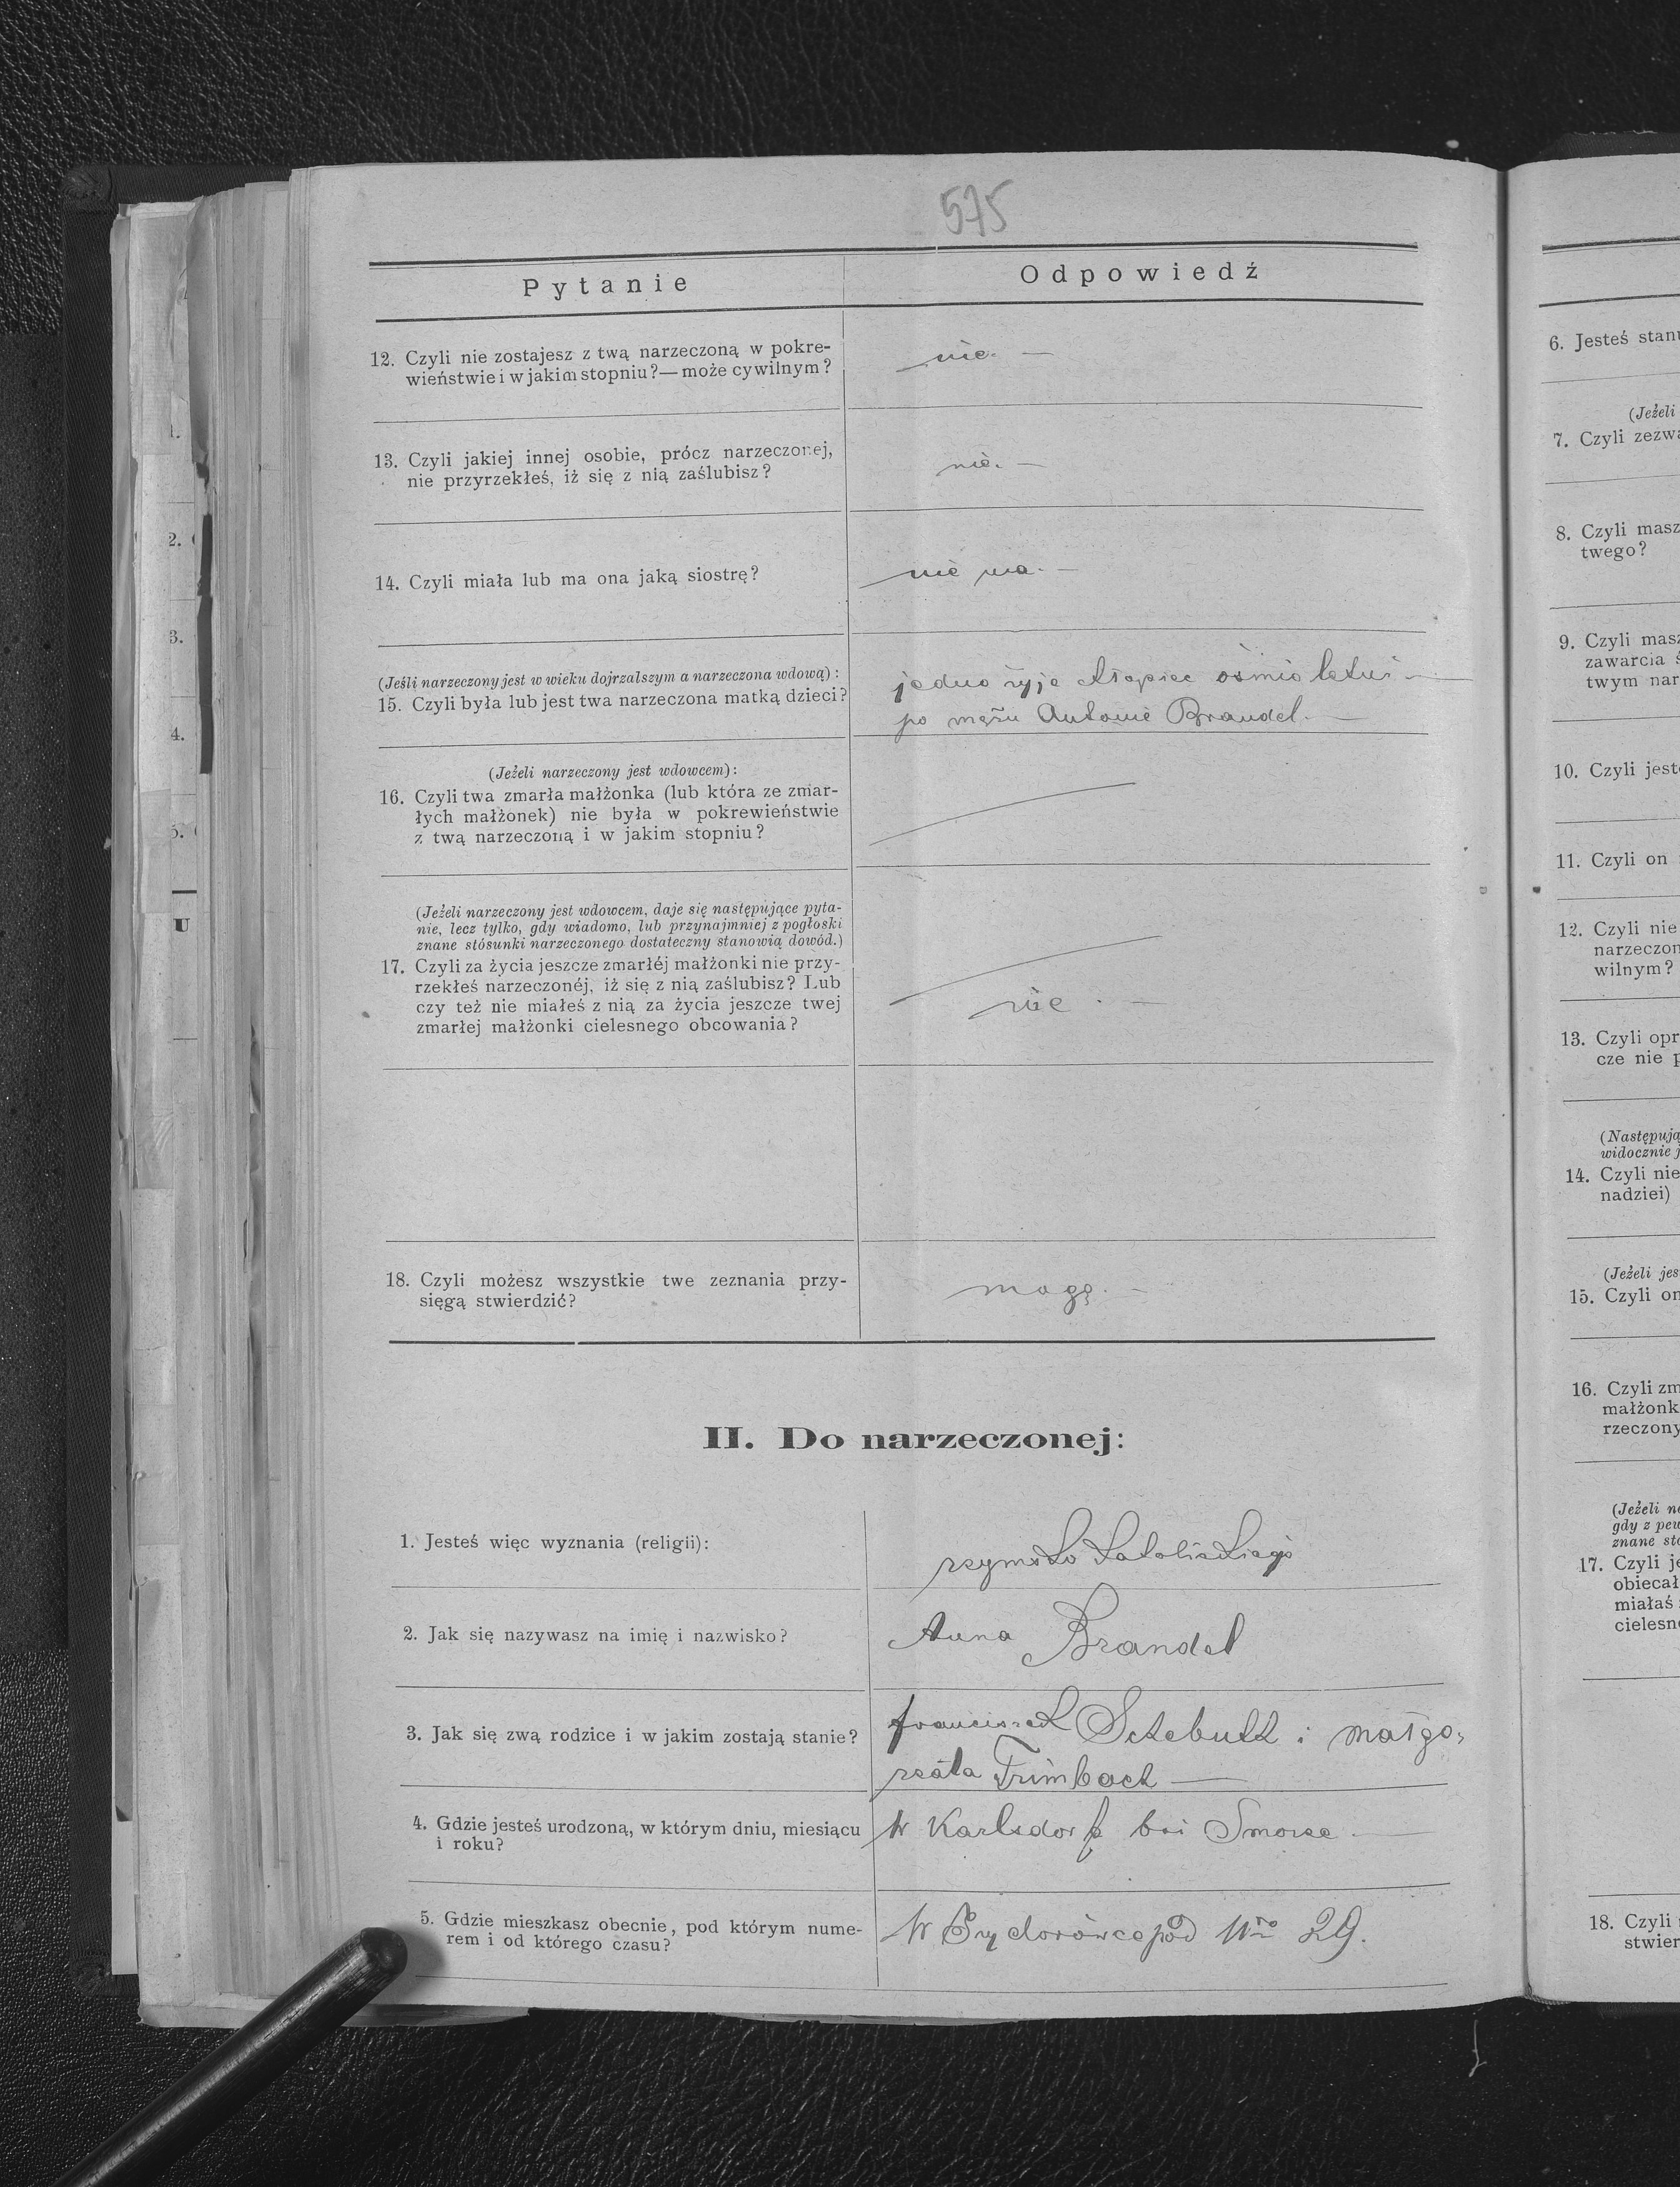 575
Pytanie
Odpowiedź
12. Czyli nie zostajesz z twą narzeczoną w pokre-
wieństwie i w jakim stopniu?— może cywilnym?
nie. —
13. Czyli jakiej innej osobie, prócz narzeczonej,
nie przyrzekłeś, iż się z nią zaślubisz?
nie. —
14. Czyli miała lub ma ona jaką siostrę?
nie ma. —
(Jeśli narzeczony jest w wieku dojrzalszym a narzeczona wdową):
15. Czyli była lub jest twa narzeczona matką dzieci?
jedno żyje chłopiec ośmio letni —
po mężu Antonie Brandel. —
(Jeżeli narzeczony jest wdowcem):
16. Czyli twa zmarła małżonka (lub która ze zmar-
łych małżonek) nie była w pokrewieństwie
z twą narzeczoną i w jakim stopniu?
(Jeżeli narzeczony jest wdowcem, daje się następujące pyta-
nie, lecz tylko, gdy wiadomo, lub przynajmniej z pogłoski
znane stósunki narzeczonego dostateczny stanowią dowód.)
17. Czyli za życia jeszcze zmarłéj małżonki nie przy-
rzekłeś narzeczonéj, iż się z nią zaślubisz? Lub
czy też nie miałeś z nią za życia jeszcze twej
zmarłej małżonki cielesnego obcowania?
nie. —
18. Czyli możesz wszystkie twe zeznania przy-
sięgą stwierdzić?
mogę. —
II. Do narzeczonej:
1. Jesteś więc wyznania (religii):
rzymsko katolickiego
2. Jak się nazywasz na imię i nazwisko?
Anna Brandel
3. Jak się zwą rodzice i w jakim zostają stanie?
franciszek i małgo-
rzata Trimbach —
4. Gdzie jesteś urodzoną, w którym dniu, miesiącu
i roku?
W Karlsdorf bei Smorze —
5. Gdzie mieszkasz obecnie, pod którym nume-
rem i od którego czasu?
W pod Nro 29.
6. Jesteś stanu
(Jeżeli
7. Czyli zezwa
8. Czyli masz
twego?
9. Czyli masz
zawarcia ś
twym nar
10. Czyli jeste
11. Czyli on
12. Czyli nie
narzeczon
wilnym?
13. Czyli opr
cze nie p
(Następują
widocznie j
14. Czyli nie
nadziei)
(Jeżeli jes
15. Czyli on
16. Czyli zm
małżonk
rzeczony
(Jeżeli na
gdy z pew
znane sto
17. Czyli je
obiecał
miałaś
cielesne
18. Czyli
stwier
2.
3.
4.
5.
U